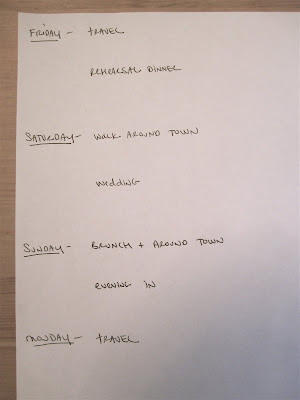 FRIDAY - TRAVEL
REHEARSAL DINNER
SATURDAY - WALK AROUND TOWN
WEDDING
SUNDAY - BRUNCH + AROUND TOWN
EVENING IN
MONDAY - TRAVEL